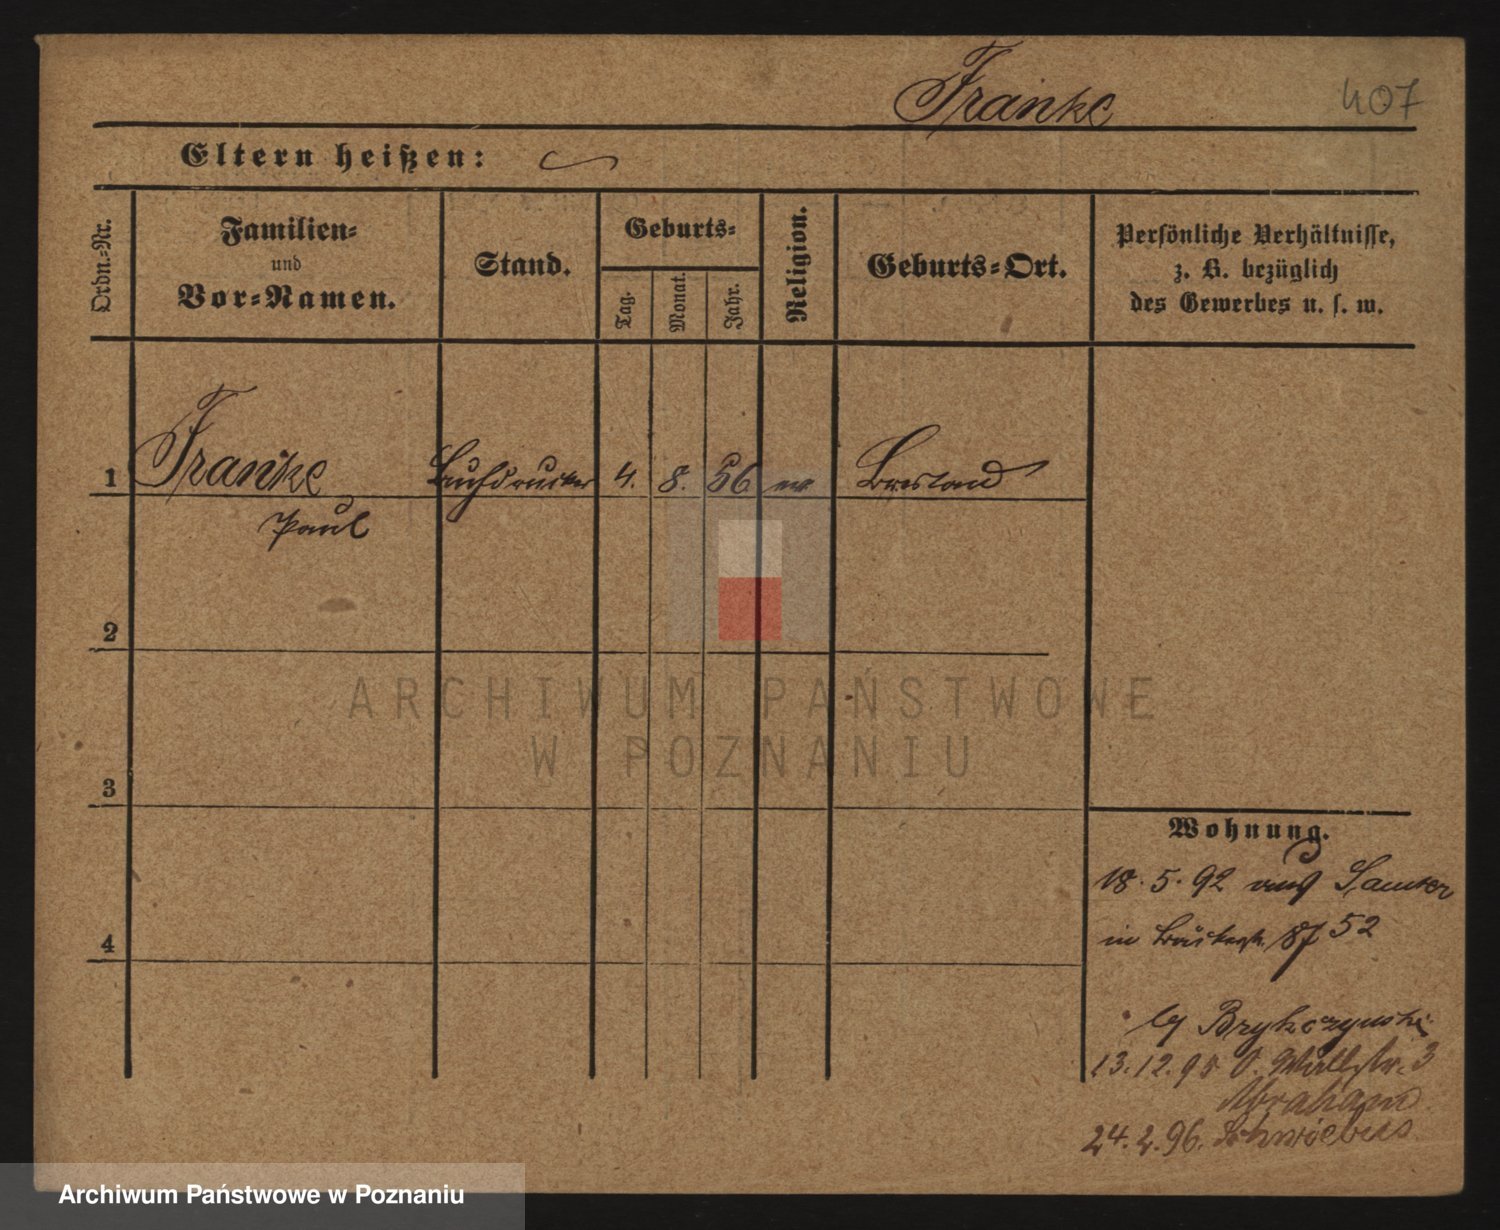 Franke
407
Eltern heißen:
Ordn.-Nr.
Familien-
und
Vor-Namen.
Stand.
Geburts-
Tag.
Monat.
Jahr.
Religion.
Geburts-Ort.
Persönliche Verhältnisse,
z. B. bezüglich
des Gewerbes u. s. w.
1 Franke Buchdrucker 4. 8. 56 ev Breslau
Paul
2
3
4
Wohnung.
18. 5. 92 aus Samter
in Bäckerstr. 52
Brykczynski
13.12.95 O. Wallstr. 3
Abraham
24.2.96. Schwiebus
ARCHIWUM PAŃSTWOWE
W POZNANIU
Archiwum Państwowe w Poznaniu